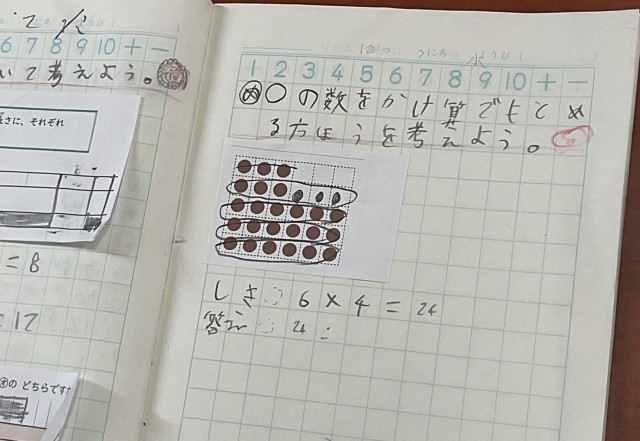 6 7 8 9 10 + −
いて考えよう。
長さに、それぞれ
= 8
= 12
の どちらですか
1 2 3 4 5 6 7 8 9 10 + −
め ○の数をかけ算でもとめ
る方ほうを考えよう。
しき: 6 × 4 = 24
答え: 24